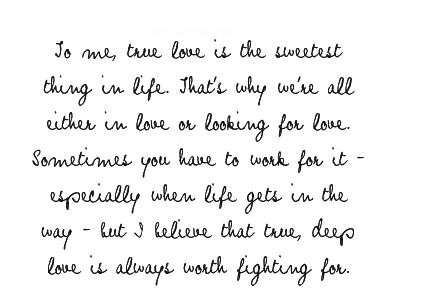 To me, true love is the sweetest
thing in life. That's why we're all
either in love or looking for love.
Sometimes you have to work for it -
especially when life gets in the
way - but I believe that true, deep
love is always worth fighting for.